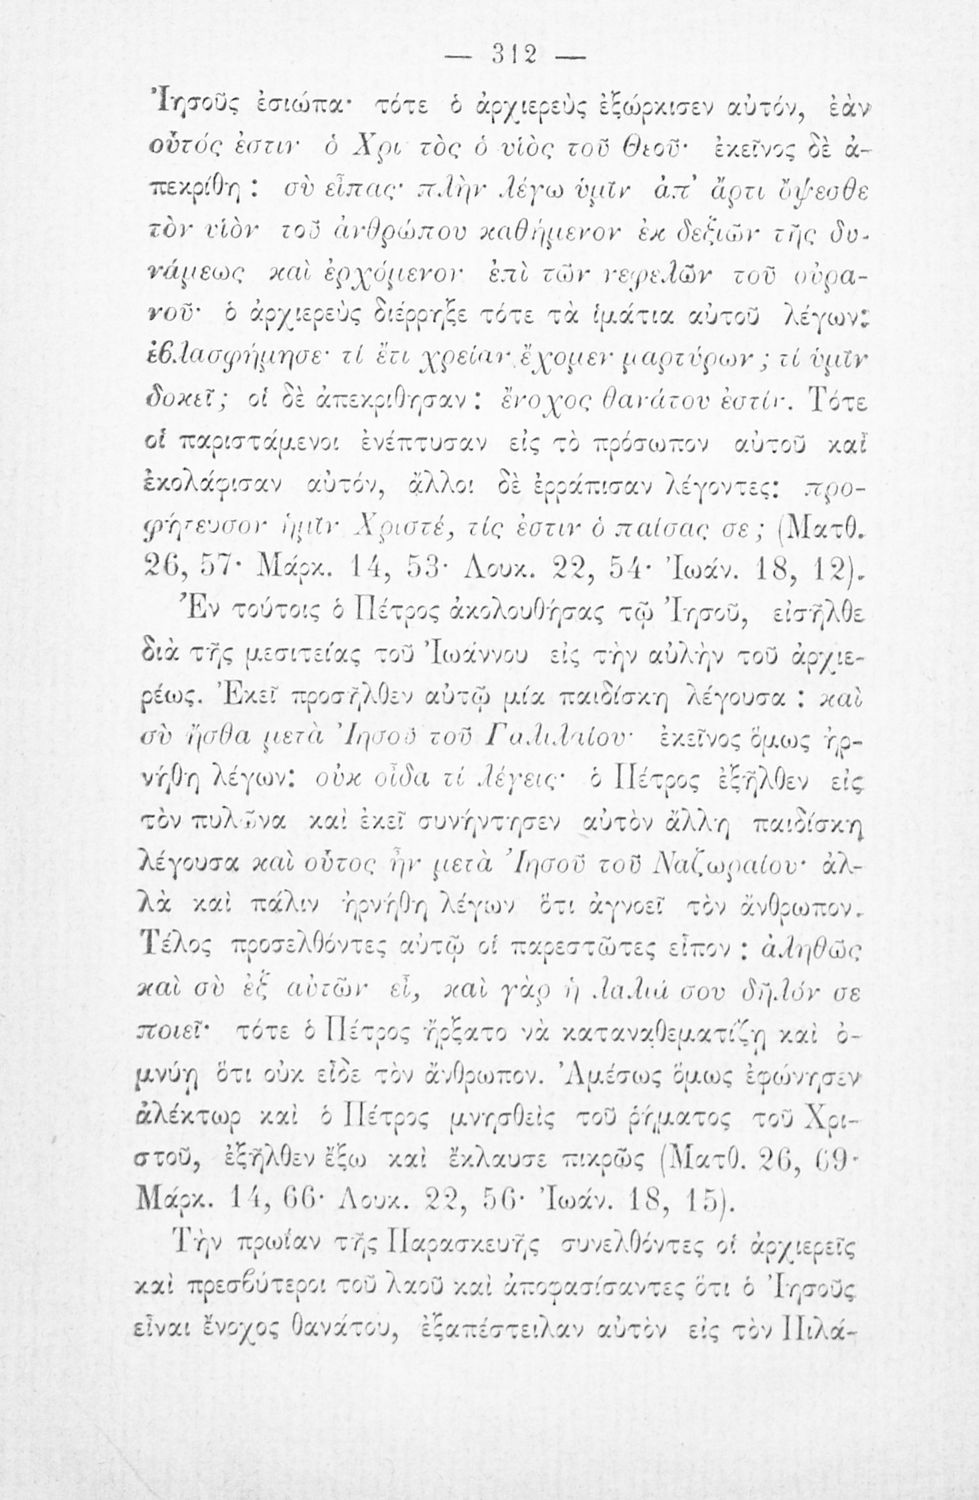 — 312 —
Ἰησοῦς ἐσιώπα· τότε ὁ ἀρχιερεὺς ἐξώρκισεν αὐτόν, ἐὰν
οὗτός ἐστιν ὁ Χριστὸς ὁ υἱὸς τοῦ Θεοῦ· ἐκεῖνος δὲ ἀ-
πεκρίθη : σὺ εἶπας· πλὴν λέγω ὑμῖν ἀπ' ἄρτι ὄψεσθε
τὸν υἱὸν τοῦ ἀνθρώπου καθήμενον ἐκ δεξιῶν τῆς δυ-
νάμεως καὶ ἐρχόμενον ἐπὶ τῶν νεφελῶν τοῦ οὐρα-
νοῦ· ὁ ἀρχιερεὺς διέρρηξε τότε τὰ ἱμάτια αὐτοῦ λέγων:
ἐβλασφήμησε· τί ἔτι χρείαν ἔχομεν μαρτύρων ; τί ὑμῖν
δοκεῖ ; οἱ δὲ ἀπεκρίθησαν : ἔνοχος θανάτου ἐστίν. Τότε
οἱ παριστάμενοι ἐνέπτυσαν εἰς τὸ πρόσωπον αὐτοῦ καὶ
ἐκολάφισαν αὐτόν, ἄλλοι δὲ ἐρράπισαν λέγοντες: προ-
φήτευσον ἡμῖν Χριστέ, τίς ἐστιν ὁ παίσας σε ; (Ματθ.
26, 57· Μάρκ. 14, 53· Λουκ. 22, 54· Ἰωάν. 18, 12).
Ἐν τούτοις ὁ Πέτρος ἀκολουθήσας τῷ Ἰησοῦ, εἰσῆλθε
διὰ τῆς μεσιτείας τοῦ Ἰωάννου εἰς τὴν αὐλὴν τοῦ ἀρχιε-
ρέως. Ἐκεῖ προσῆλθεν αὐτῷ μία παιδίσκη λέγουσα : καὶ
σὺ ἦσθα μετὰ Ἰησοῦ τοῦ Γαλιλαίου· ἐκεῖνος ὅμως ἠρ-
νήθη λέγων: οὐκ οἶδα τί λέγεις· ὁ Πέτρος ἐξῆλθεν εἰς
τὸν πυλῶνα καὶ ἐκεῖ συνήντησεν αὐτὸν ἄλλη παιδίσκη
λέγουσα καὶ οὗτος ἦν μετὰ Ἰησοῦ τοῦ Ναζωραίου· ἀλ-
λὰ καὶ πάλιν ἠρνήθη λέγων ὅτι ἀγνοεῖ τὸν ἄνθρωπον.
Τέλος προσελθόντες αὐτῷ οἱ παρεστῶτες εἶπον : ἀληθῶς
καὶ σὺ ἐξ αὐτῶν εἶ, καὶ γὰρ ἡ λαλιά σου δῆλόν σε
ποιεῖ· τότε ὁ Πέτρος ἤρξατο νὰ καταναθεματίζῃ καὶ ὀ-
μνύῃ ὅτι οὐκ εἶδε τὸν ἄνθρωπον. Ἀμέσως ὅμως ἐφώνησεν
ἀλέκτωρ καὶ ὁ Πέτρος μνησθεὶς τοῦ ῥήματος τοῦ Χρι-
στοῦ, ἐξῆλθεν ἔξω καὶ ἔκλαυσε πικρῶς (Ματθ. 26, 69·
Μάρκ. 14, 66· Λουκ. 22, 56· Ἰωάν. 18, 15).
Τὴν πρωΐαν τῆς Παρασκευῆς συνελθόντες οἱ ἀρχιερεῖς
καὶ πρεσβύτεροι τοῦ λαοῦ καὶ ἀποφασίσαντες ὅτι ὁ Ἰησοῦς
εἶναι ἔνοχος θανάτου, ἐξαπέστειλαν αὐτὸν εἰς τὸν Πιλά-